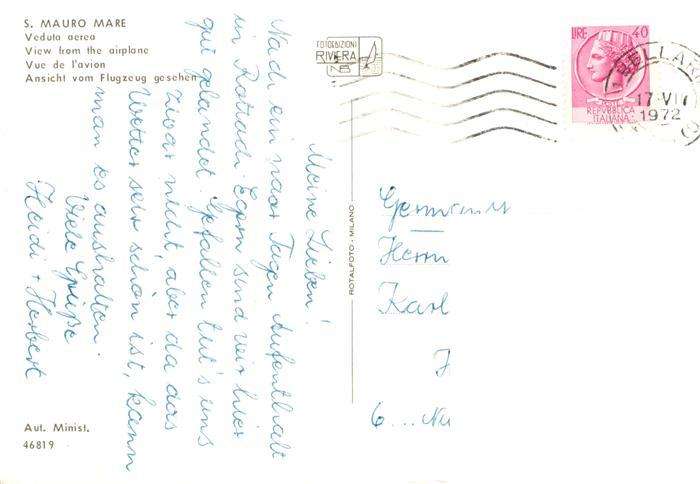 S. MAURO MARE
Veduta aerea
View from the airplane
Vue de l'avion
Ansicht vom Flugzeug gesehen
FOTOEDIZIONI
RIVIERA
LIRE 40
REPVBBLICA
ITALIANA
BELLARI
17-VII
1972
Meine Lieben!
Nach ein paar Tagen Aufenthalt
in Rottach Egern sind wir hier
gut gelandet. Gefallen tut's uns
zwar nicht, aber da das
Wetter sehr schön ist, kann
man es aushalten.
Viele Grüße
Heidi + Herbert
ROTALFOTO - MILANO
Germania
Herrn
Karl
Aut. Minist.
46819